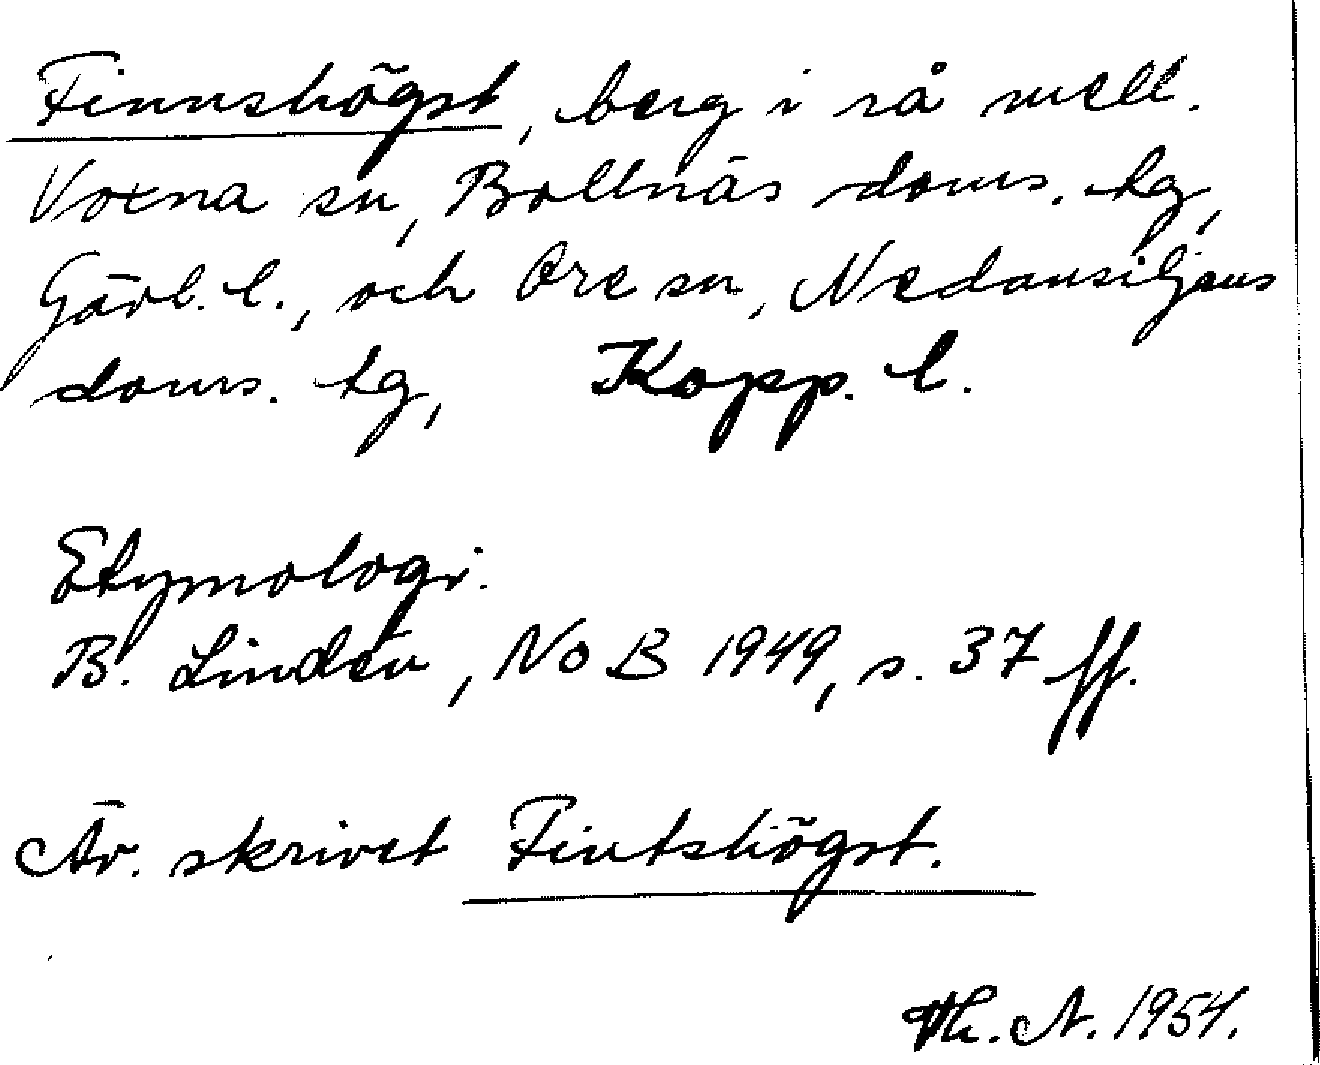 Finnshögst, berg i rå mell.
Voxna sn, Bollnäs doms. tg,
Gävl. l., och Ore sn, Nedansiljans
doms. tg, Kopp. l.
Etymologi.
B. Lindén, NoB 1949, s. 37 ff.
Äv. skrivet Fintshögst.
Th. A. 1954.